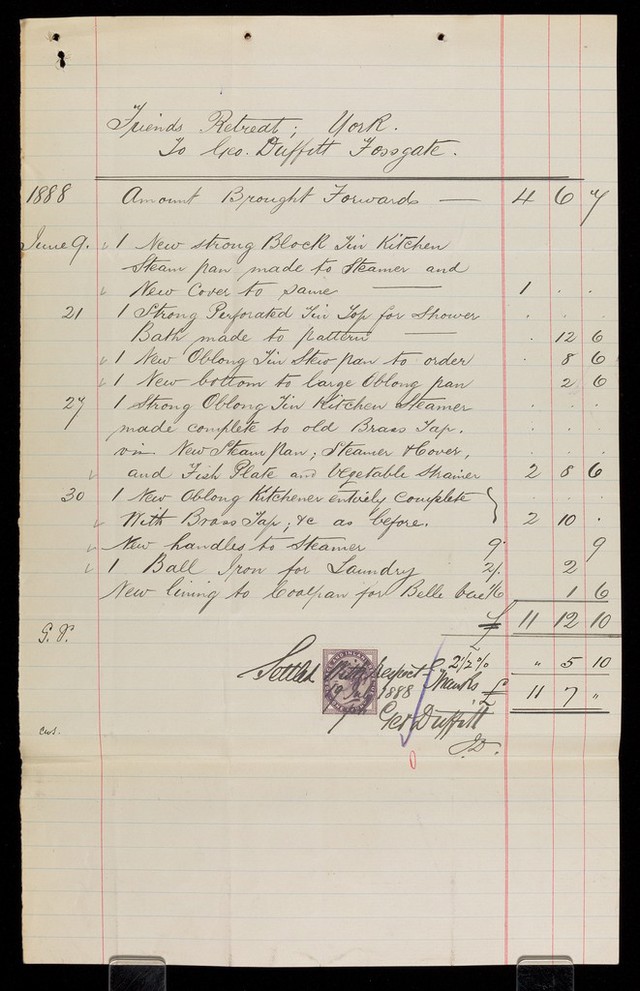 Friends Retreat; York.
To Geo. Duffitt Fossgate.
1888 Amount Brought Forwards — 4 6 7
June 9. 1 New strong Block Tin Kitchen
Steam pan made to Steamer and
New Cover to same — 1 . .
21 1 Strong Perforated Tin Top for Shower
Bath made to pattern — . 12 6
1 New Oblong Tin Stew pan to order . 8 6
1 New bottom to large Oblong pan 2 6
27 1 Strong Oblong Tin Kitchen Steamer
made complete to old Brass Tap.
viz. New Steam Pan; Steamer & Cover,
and Fish Plate and Vegetable Strainer 2 8 6
30 1 New Oblong Kitchener entirely Complete
With Brass Tap; &c as before. 2 10 .
New handles to Steamer 9. 9
1 Ball Iron for Laundry 2/. 2
New lining to Coalpan for Belle Vue 1/6 1 6
£ 11 12 10
G. P.
2 1/2 % " 5 10
Settled With respect & Thanks
£ 11 7 "
19 July 1888
Geo Duffitt
J.D.
cws.